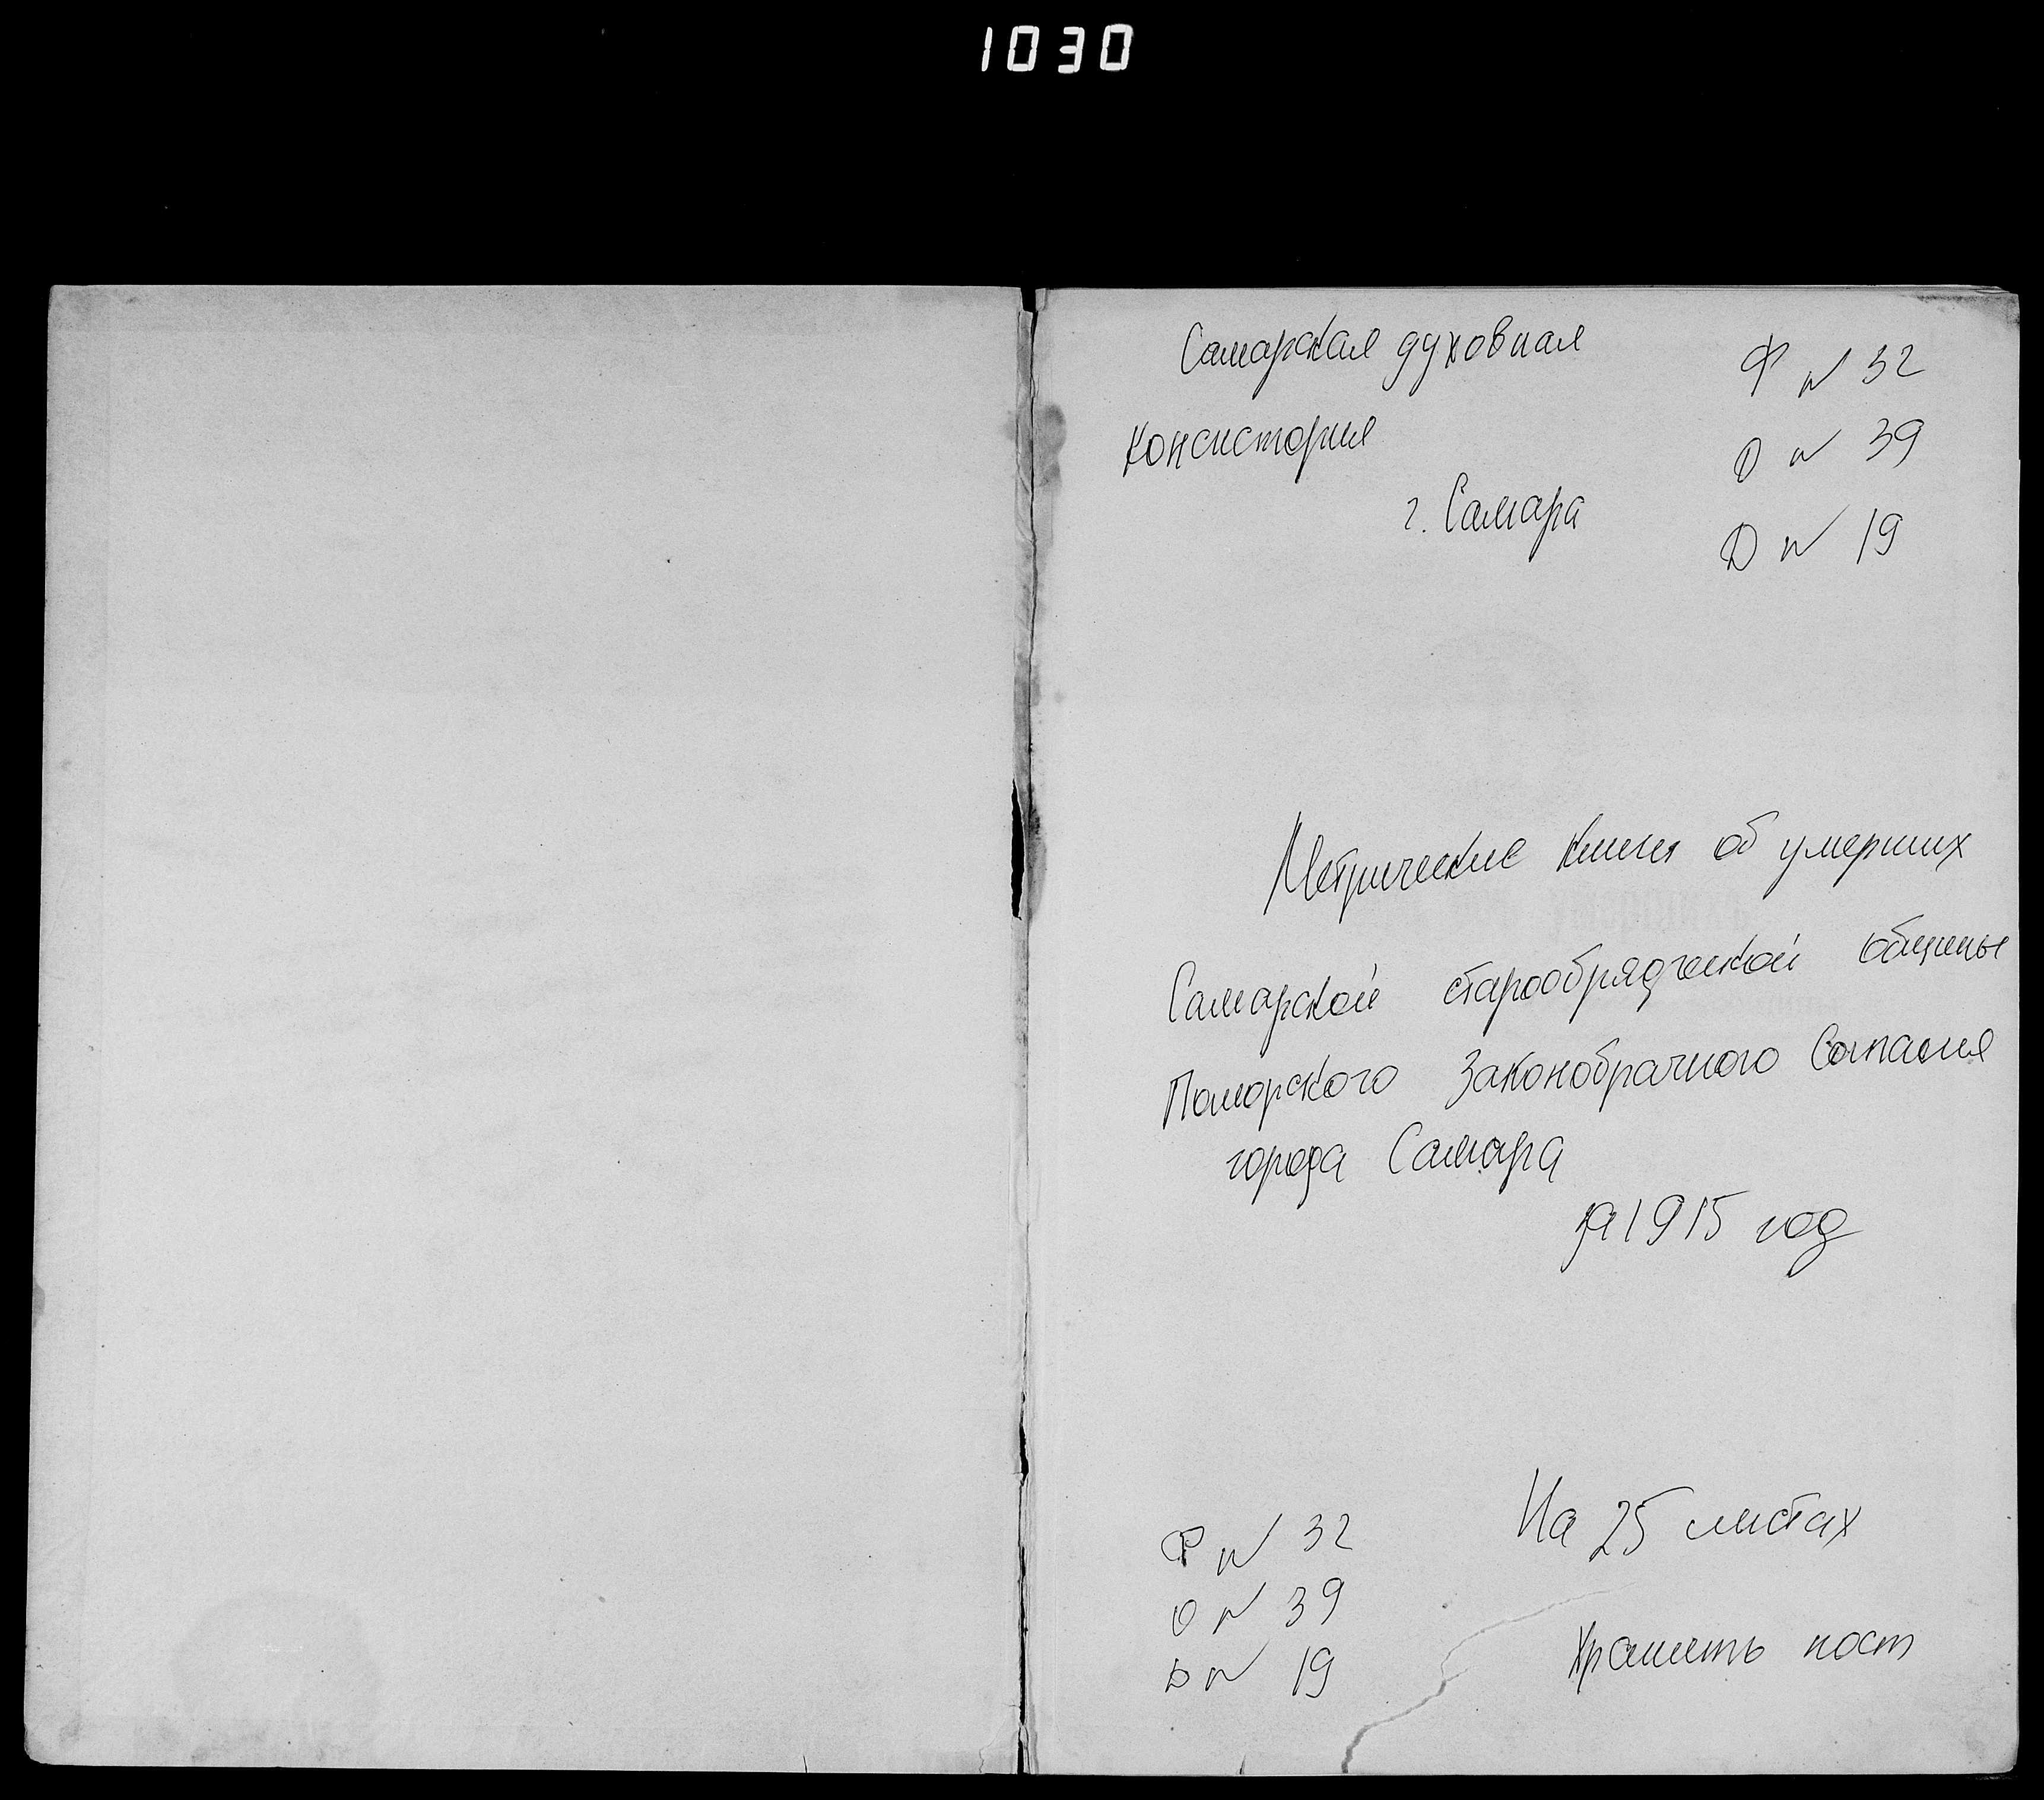 1030
Самарская духовная
Ф N 32
консистория
О N 39
г. Самара
Д N 19
Метрические книги об умерших
Самарской старообрядческой общины
Поморского Законобрачного Согласия
города Самара
за 1915 год
На 25 листах
Ф N 32
О N 39
Хранить пост
Д N 19